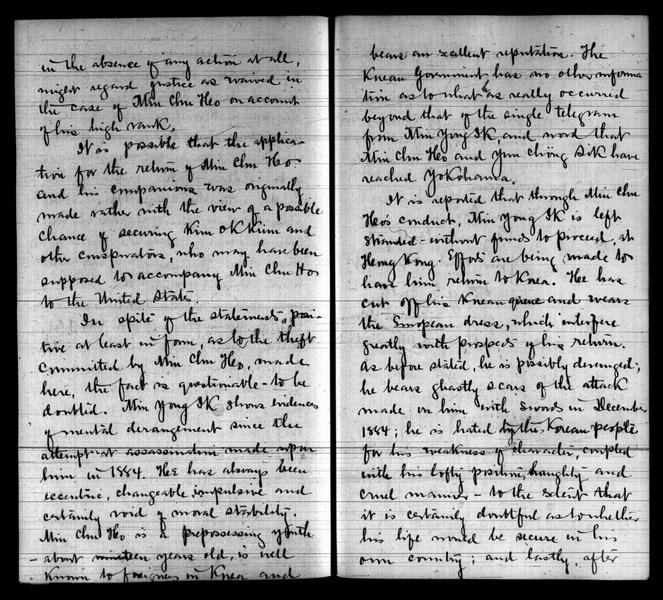 in the absence of any action at all,
might regard justice as waived in
the case of Min Chu Ho on account
of his high rank.
It is possible that the applica-
tion for the return of Min Chu Ho
and his companions was originally
made rather with the view of a possible
chance of securing Kim Ok Kiun and
other conspirators, who may have been
supposed to accompany Min Chu Ho
to the United States.
In spite of the statements, posi-
tive at least in form, as to the theft
committed by Min Chu Ho, made
here, the fact is questionable - to be
doubted. Min Yong Ik shows evidences
of mental derangement since the
attempt at assassination made upon
him in 1884. He has always been
eccentric, changeable, impulsive and
certainly void of moral stability.
Min Chu Ho is a prepossessing youth
about nineteen years old, is well
known to foreigners in Korea and
bears an excellent reputation. The
Korean Government has no other informa
tion as to what has really occurred
beyond that of the single telegram
from Min Yong Ik, and word that
Min Chu Ho and Yun Chöng Sik have
reached Yokohama.
It is reported that through Min Chu
Ho's conduct, Min Yong Ik is left
stranded - without funds to proceed, at
Hong Kong. Efforts are being made to
have him return to Korea. He has
cut off his Korean queue and wears
the European dress, which interfere
greatly with prospects of his return.
As before stated, he is possibly deranged;
he bears ghastly scars of the attack
made on him with swords in December
1884; he is hated by the Korean people
for his weakness of character, coupled
with his lofty positive, haughty and
cruel manner - to the extent that
it is certainly doubtful as to whether
his life would be secure in his
own country; and lastly, after